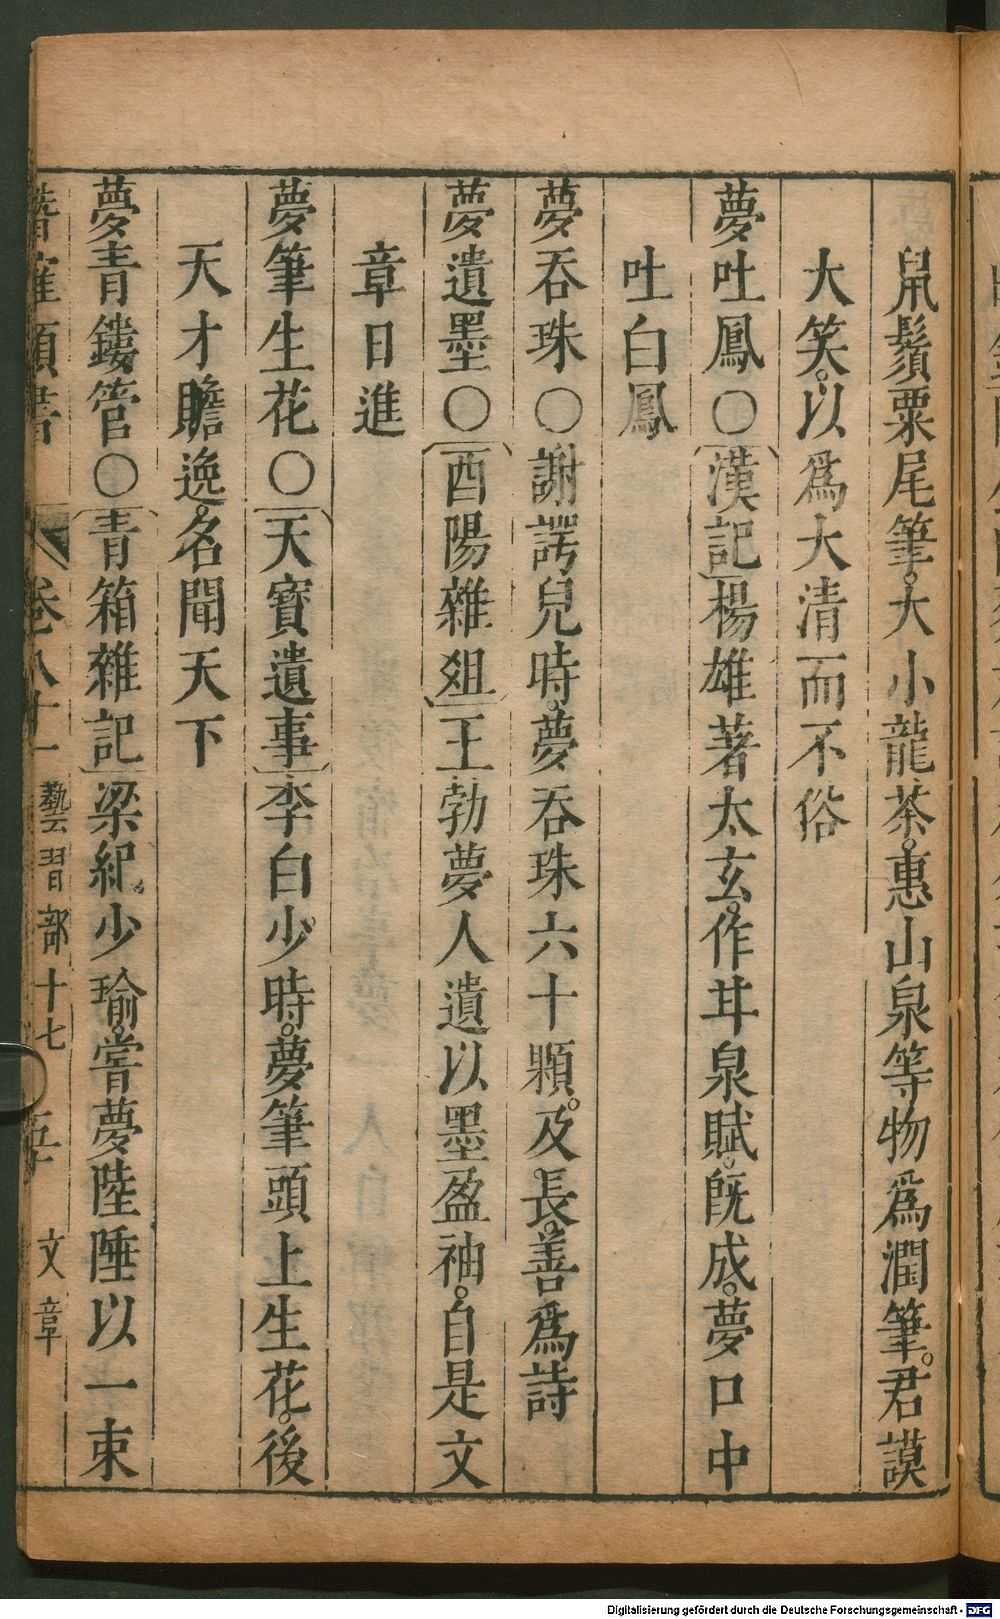 鼠鬚粟尾筆。大小龍茶。惠山泉等物爲潤筆。君謨
大笑。以爲大清而不俗
夢吐鳳〇漢記楊雄著太玄。作甘泉賦。旣成。夢口中
吐白鳳
夢吞珠〇謝諤兒時。夢吞珠六十顆。及長。善爲詩
夢遺墨〇酉陽雜爼王勃夢人遺以墨盈袖。自是文
章日進
夢筆生花〇天寶遺事李白少時。夢筆頭上生花。後
天才贍逸。名聞天下
夢青鏤管〇青箱雜記梁紀少瑜。嘗夢陸陲以一束
潛確類書 卷八十一 藝習部十七 五 文章
Digitalisierung gefördert durch die Deutsche Forschungsgemeinschaft - DFG